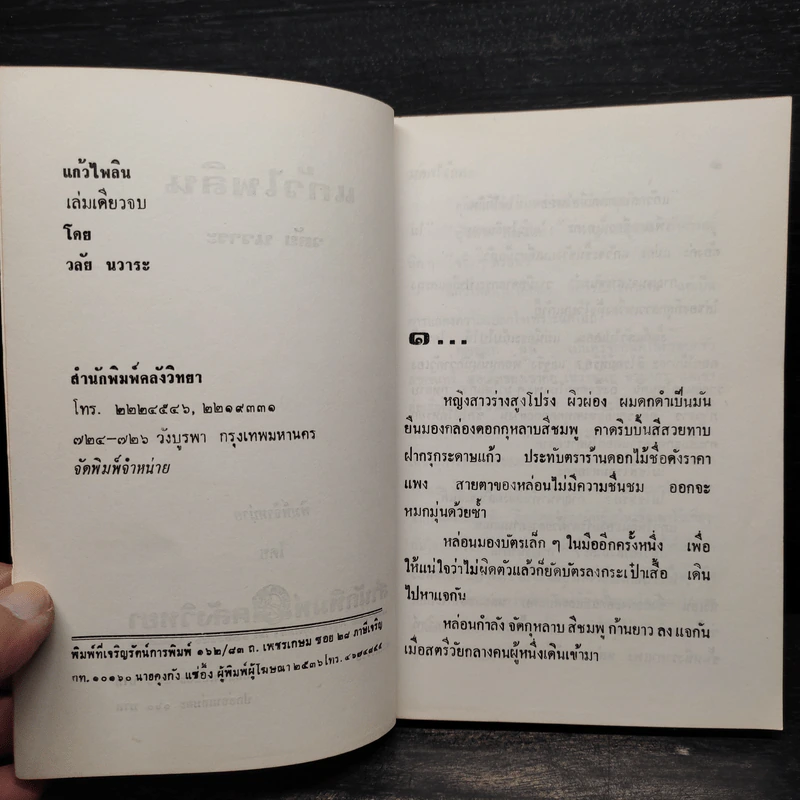 แก้วไพลิน
เล่มเดียวจบ
โดย
วลัย นวาระ
สำนักพิมพ์คลังวิทยา
โทร. ๒๒๒๔๕๔๖, ๒๒๑๙๓๓๑
๗๒๔–๗๒๖ วังบูรพา กรุงเทพมหานคร
จัดพิมพ์จำหน่าย
พิมพ์ที่เจริญรัตน์การพิมพ์ ๑๖๒/๘๓ ถ. เพชรเกษม ซอย ๒๘ ภาษีเจริญ
กท. ๑๐๑๖๐ นายคุงกัง แซ่อึ้ง ผู้พิมพ์ผู้โฆษณา ๒๕๓๖ โทร.
๑...
หญิงสาวร่างสูงโปร่ง ผิวผ่อง ผมดกดำเป็นมัน
ยืนมองกล่องดอกกุหลาบสีชมพู คาดริบบิ้นสีสวยทาบ
ฝากรุกระดาษแก้ว ประทับตราร้านดอกไม้ชื่อดังราคา
แพง สายตาของหล่อนไม่มีความชื่นชม ออกจะ
หมกมุ่นด้วยซ้ำ
หล่อนมองบัตรเล็ก ๆ ในมืออีกครั้งหนึ่ง เพื่อ
ให้แน่ใจว่าไม่ผิดตัวแล้วก็ยัดบัตรลงกระเป๋าเสื้อ เดิน
ไปหาแจกัน
หล่อนกำลัง จัดกุหลาบ สีชมพู ก้านยาว ลง แจกัน
เมื่อสตรีวัยกลางคนผู้หนึ่งเดินเข้ามา